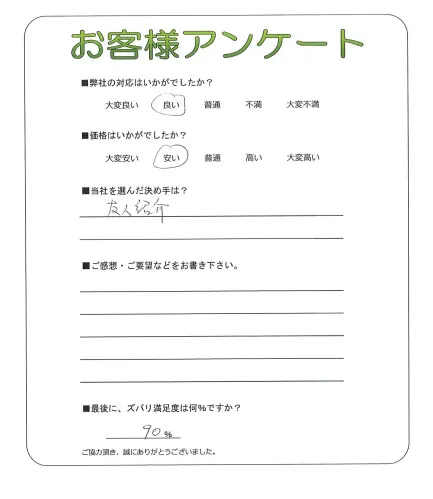 お客様アンケート
■弊社の対応はいかがでしたか？
大変良い 良い 普通 不満 大変不満
■価格はいかがでしたか？
大変安い 安い 普通 高い 大変高い
■当社を選んだ決め手は？
友人紹介
■ご感想・ご要望などをお書き下さい。
■最後に、ズバリ満足度は何%ですか？
90 %
ご協力頂き、誠にありがとうございました。